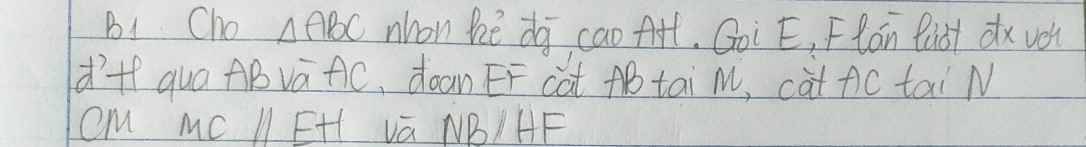 B1 Cho △ABC nhọn kẻ đg cao AH. Gọi E, F lần lượt đx với
đ' H qua AB và AC, đoạn EF cắt AB tại M, cắt AC tại N
CM MC // EH và NB // HF